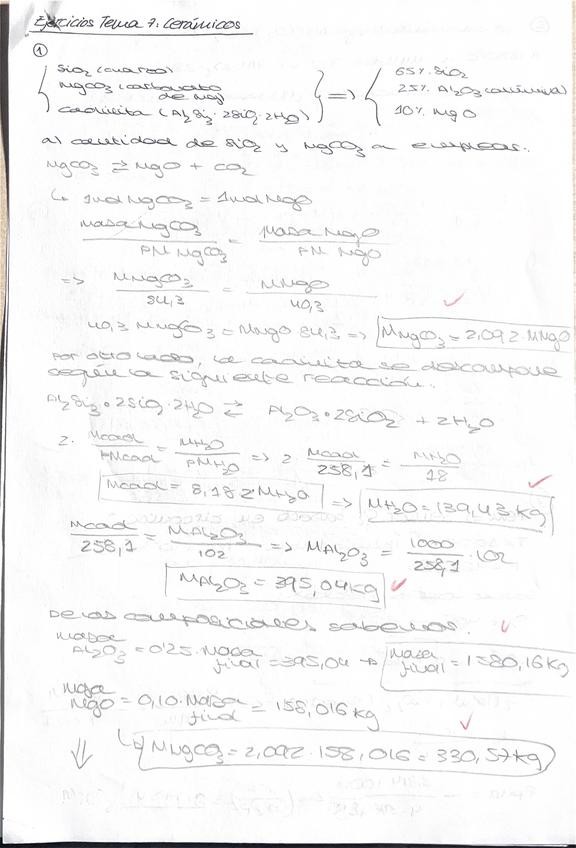 Ejercicios Tema 7: Cerámicos
①
SiO2 (cuarzo)
MgCO3 (carbonato de Mg)
caolinita (Al2Si3·2SiO2·2H2O)
=> 65% SiO2
25% Al2O3 (alúmina)
10% MgO
a) cantidad de SiO2 y MgCO3 a emplear.
MgCO3 ⇄ MgO + CO2
↳ 1mol MgCO3 = 1mol MgO
Masa MgCO3 / PM MgCO3 = Masa MgO / PM MgO
=> MMgCO3 / 84,3 = MMgO / 40,3
40,3 MMgCO3 = MMgO 84,3 => MMgCO3 = 2,092·MMgO
Por otro lado, la caolinita se descompone
según la siguiente reacción:
Al2Si3·2SiO2·2H2O ⇄ Al2O3·2SiO2 + 2H2O
2· Mcaol / PMcaol = MH2O / PMH2O => 2· Mcaol / 258,1 = MH2O / 18
Mcaol = 8,182 MH2O => MH2O = 139,43 kg
Mcaol / 258,1 = MAl2O3 / 102 => MAl2O3 = 1000 / 258,1 · 102
MAl2O3 = 395,04 kg
De las composiciones sabemos:
Masa Al2O3 = 0'25·Masa final = 395,04 → Masa final = 1580,16 kg
Masa MgO = 0,10·Masa final = 158,016 kg
↳ MMgCO3 = 2,092·158,016 = 330,57 kg
⇓